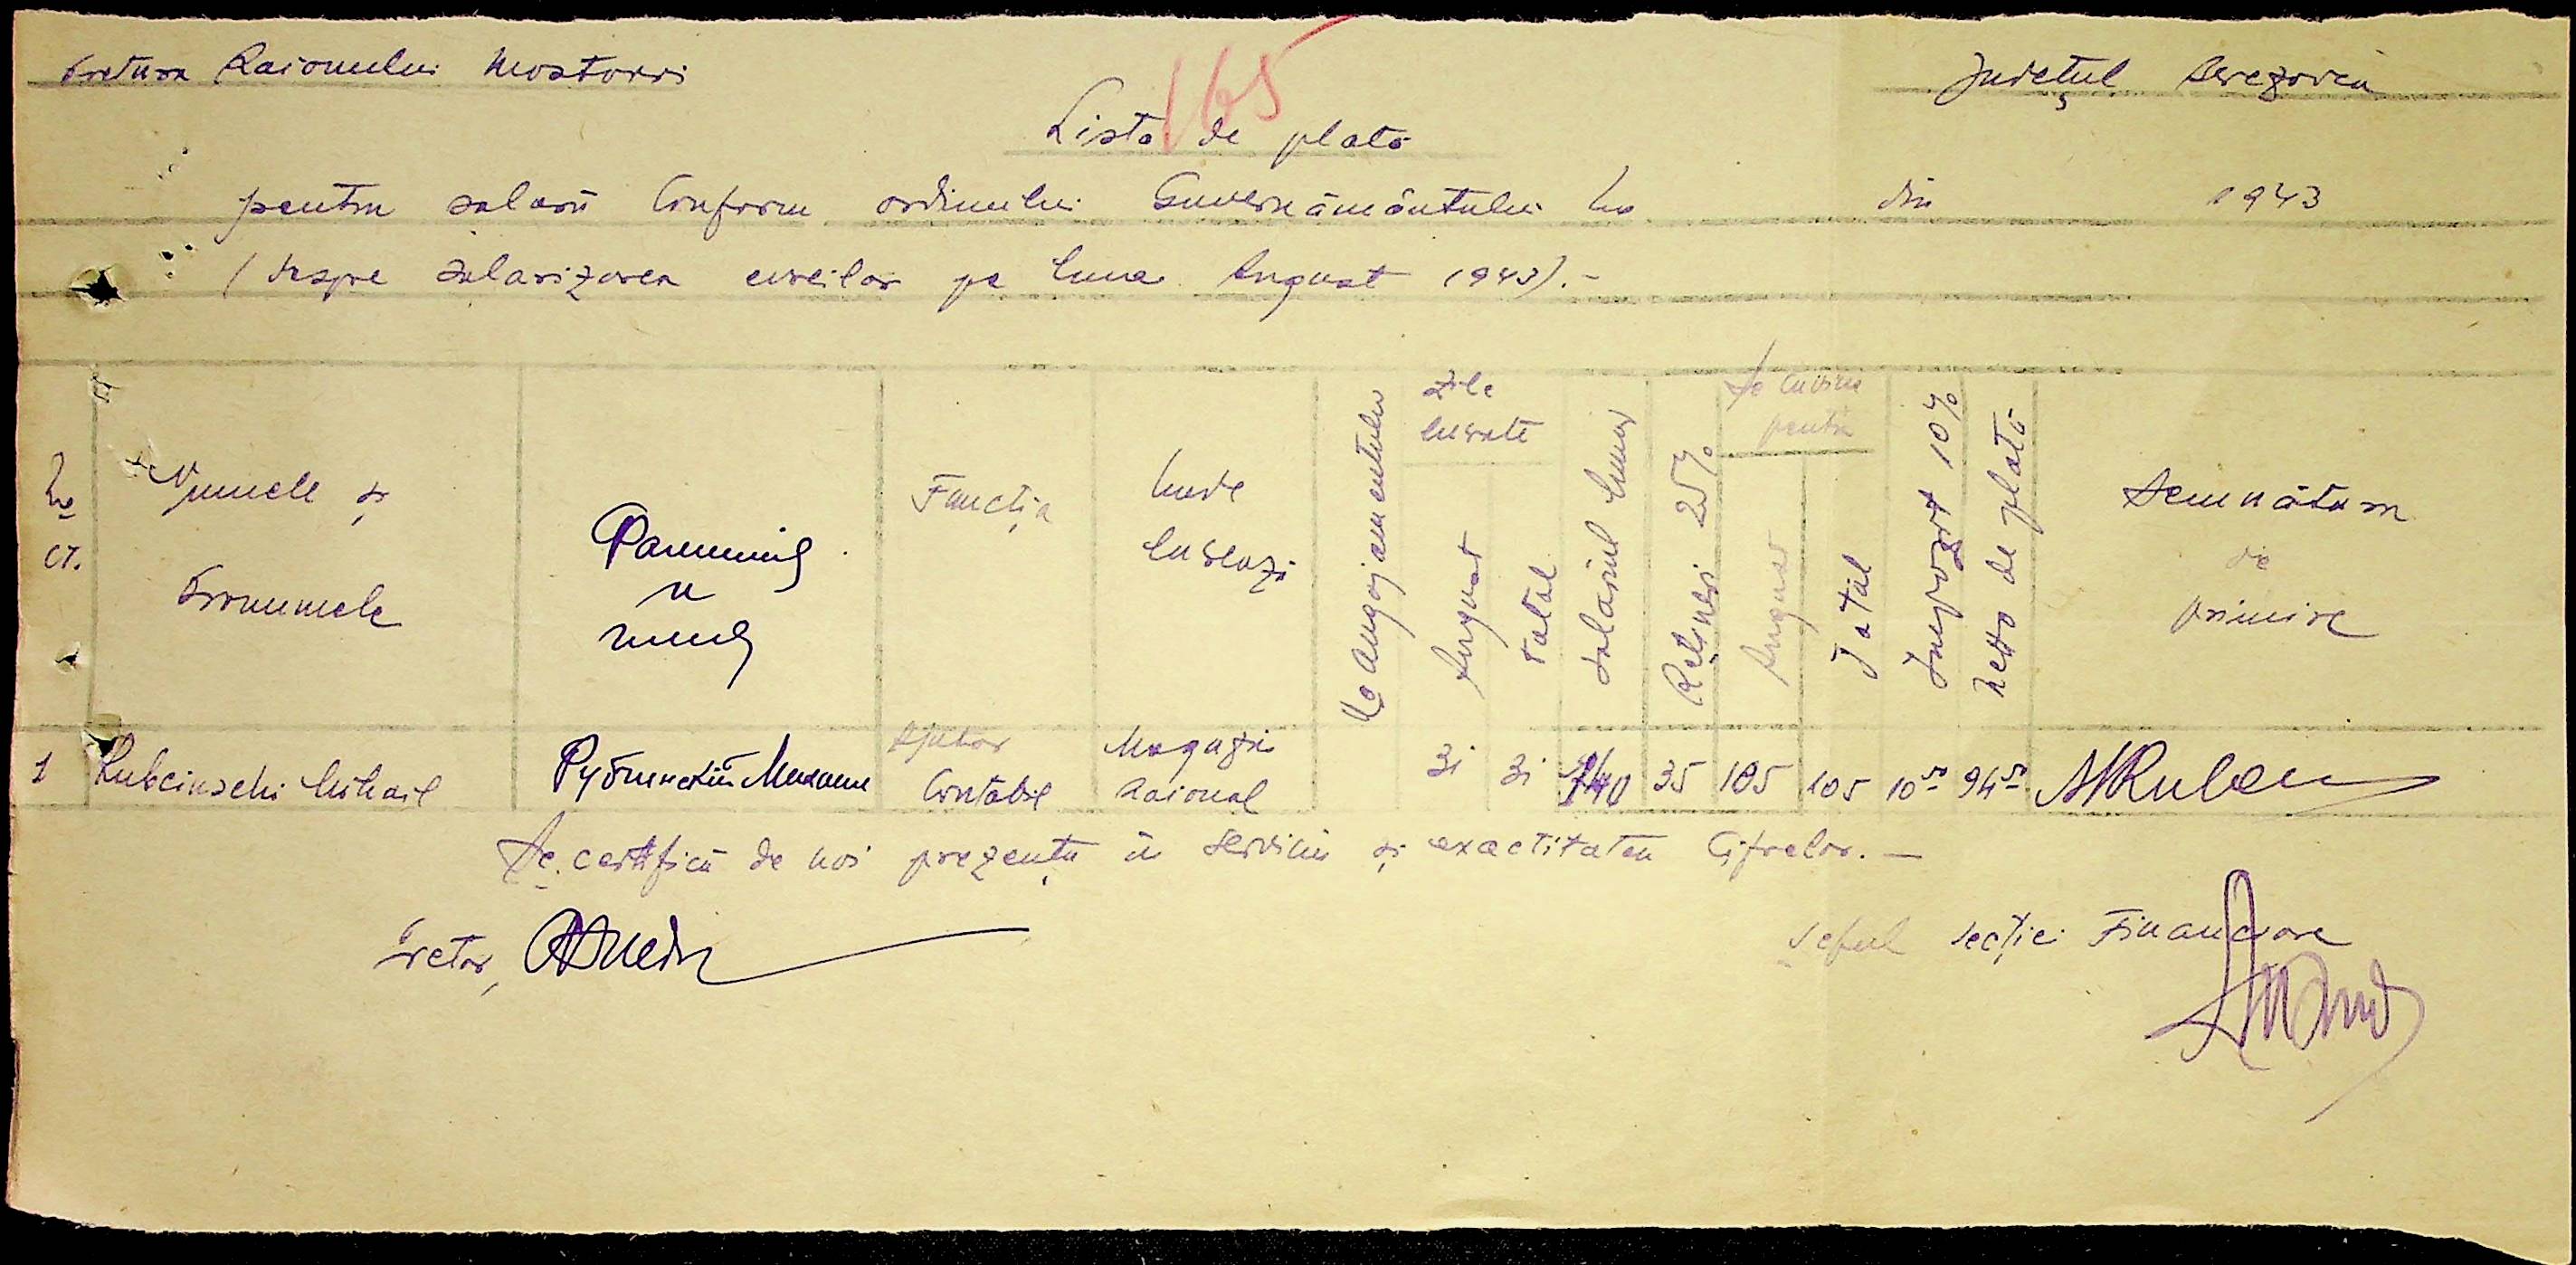 Pretura Raionului Mostovoi
Județul Berezovca
165
Lista de plată
pentru salarii Conform ordinului Guvernământului No din 1943
(despre salarizarea evreilor pe luna August 1943).-
No cr.
Numele și Pronumele
Фамилия и имя
Funcția
Unde lucrează
No angajamentului
Zile lucrate
August
Total
Salariul lunar
Rețineri 25%
Se cuvine pentru
August
Total
Impozit 10%
Netto de plată
Semnătura de primire
1 Rubcinschi Mihail Рубчинский Михаил Ajutor Contabil Magazia Raional 31 31 140 35 105 105 10 50 94 50
Se certifică de noi prezența în serviciu și exactitatea cifrelor.—
Pretor,
Șeful secției Financiare